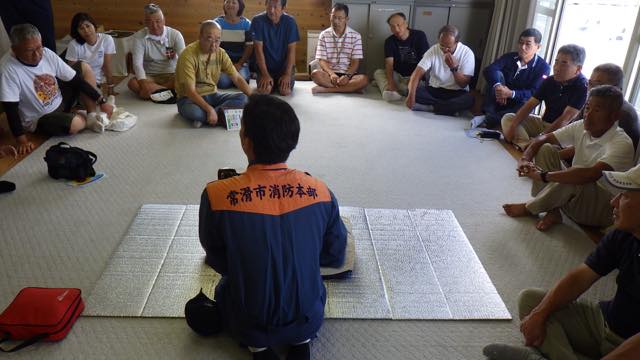 常滑市消防本部